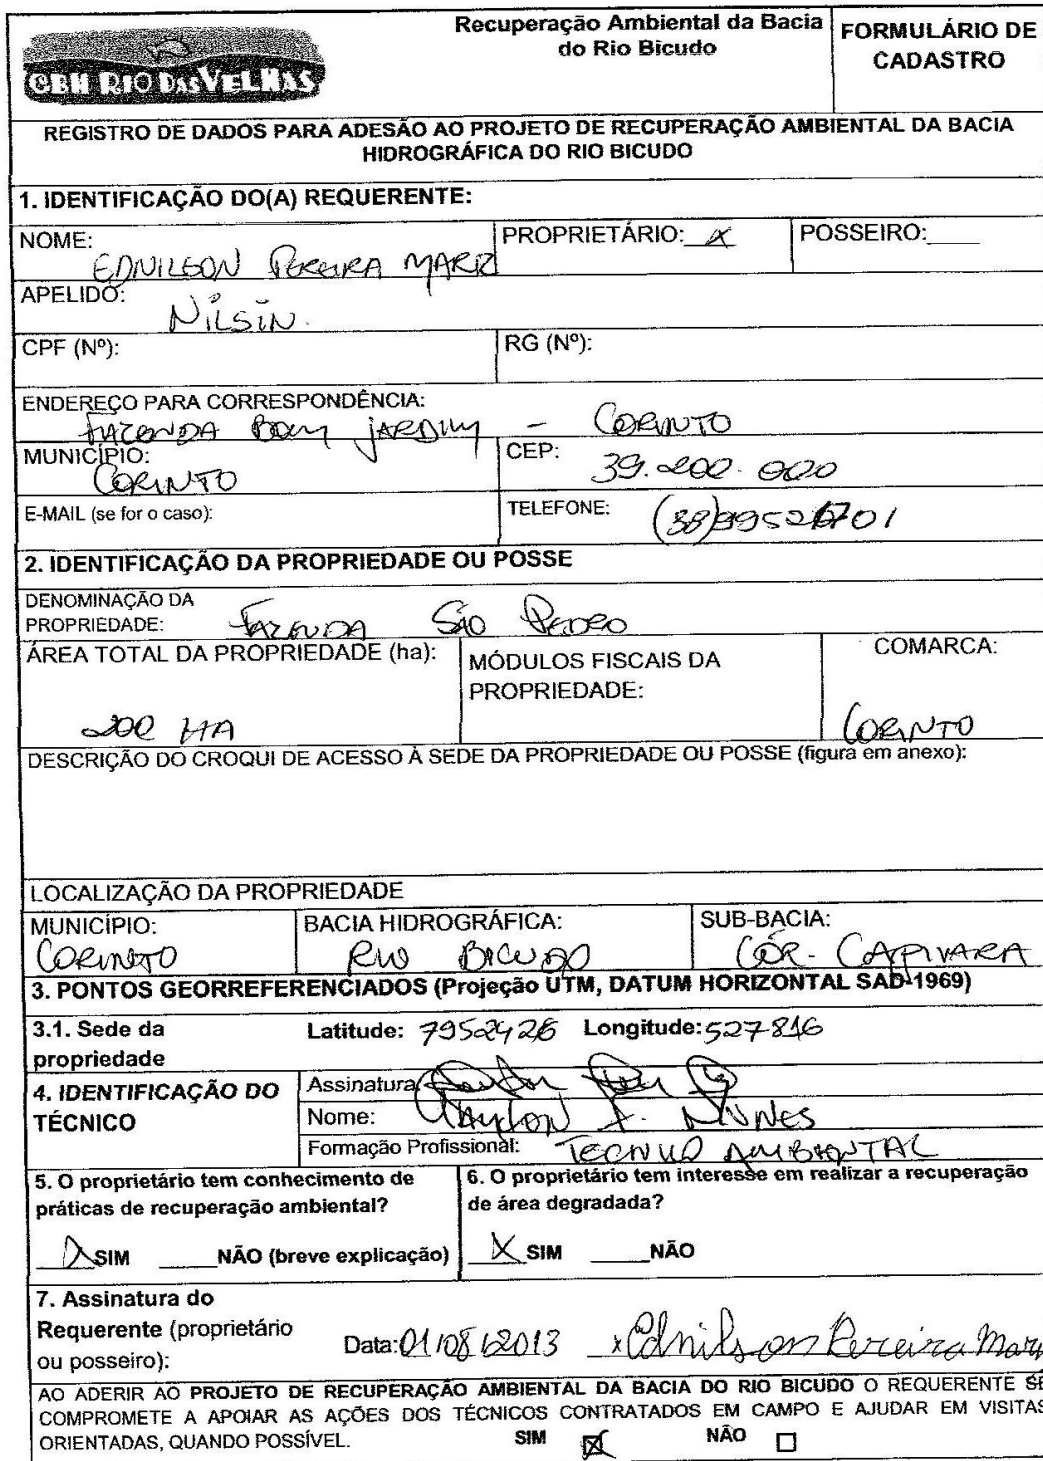 CBH RIO DAS VELHAS
Recuperação Ambiental da Bacia
do Rio Bicudo
FORMULÁRIO DE
CADASTRO
REGISTRO DE DADOS PARA ADESÃO AO PROJETO DE RECUPERAÇÃO AMBIENTAL DA BACIA
HIDROGRÁFICA DO RIO BICUDO
1. IDENTIFICAÇÃO DO(A) REQUERENTE:
NOME: EDNILSON PEREIRA MARIZ
PROPRIETÁRIO: X
POSSEIRO:____
APELIDO: NILSIN.
CPF (Nº):
RG (Nº):
ENDEREÇO PARA CORRESPONDÊNCIA:
FAZENDA BOM JARDIM - CORINTO
MUNICÍPIO: CORINTO
CEP: 39.200.000
E-MAIL (se for o caso):
TELEFONE: (38)
2. IDENTIFICAÇÃO DA PROPRIEDADE OU POSSE
DENOMINAÇÃO DA
PROPRIEDADE: FAZENDA SÃO PEDRO
ÁREA TOTAL DA PROPRIEDADE (ha):
200 HA
MÓDULOS FISCAIS DA
PROPRIEDADE:
COMARCA:
CORINTO
DESCRIÇÃO DO CROQUI DE ACESSO À SEDE DA PROPRIEDADE OU POSSE (figura em anexo):
LOCALIZAÇÃO DA PROPRIEDADE
MUNICÍPIO:
CORINTO
BACIA HIDROGRÁFICA:
RIO BICUDO
SUB-BACIA:
CÓR. CAPIVARA
3. PONTOS GEORREFERENCIADOS (Projeção UTM, DATUM HORIZONTAL SAD-1969)
3.1. Sede da
propriedade
Latitude: 7952426 Longitude: 527816
4. IDENTIFICAÇÃO DO
TÉCNICO
Assinatura
Nome: Clayton F. NUNES
Formação Profissional: TECNICO AMBIENTAL
5. O proprietário tem conhecimento de
práticas de recuperação ambiental?
X SIM ____NÃO (breve explicação)
6. O proprietário tem interesse em realizar a recuperação
de área degradada?
X SIM ____NÃO
7. Assinatura do
Requerente (proprietário
ou posseiro):
Data: 01/08/2013 x Ednilson Pereira Mariz
AO ADERIR AO PROJETO DE RECUPERAÇÃO AMBIENTAL DA BACIA DO RIO BICUDO O REQUERENTE SE
COMPROMETE A APOIAR AS AÇÕES DOS TÉCNICOS CONTRATADOS EM CAMPO E AJUDAR EM VISITAS
ORIENTADAS, QUANDO POSSÍVEL. SIM ☒ NÃO ☐